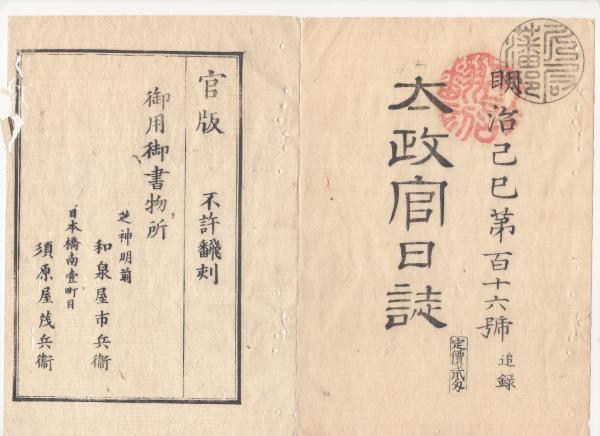 明治己巳第百十六號 追録
太政官日誌
定價貳匁
官版 不許飜刻
御用御書物所
芝神明前
和泉屋市兵衞
日本橋南壹町目
須原屋茂兵衞